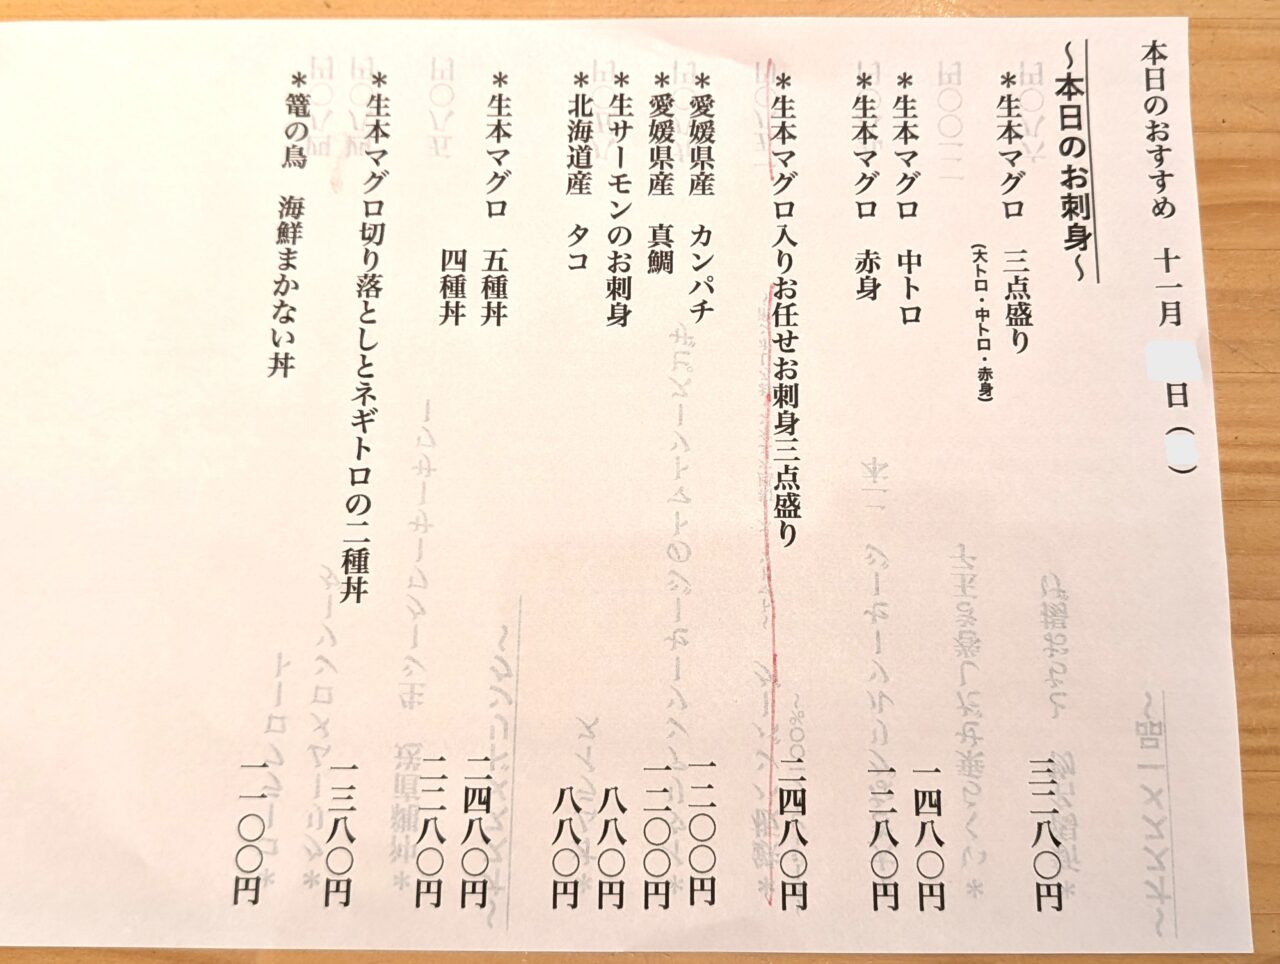 本日のおすすめ 十一月 日( )
~本日のお刺身~
*生本マグロ 三点盛り 三二八〇円
(大トロ・中トロ・赤身)
*生本マグロ 中トロ 一四八〇円
*生本マグロ 赤身 一二八〇円
*生本マグロ入りお任せお刺身三点盛り 二四八〇円
*愛媛県産 カンパチ 一二〇〇円
*愛媛県産 真鯛 一二〇〇円
*生サーモンのお刺身 八八〇円
*北海道産 タコ 八八〇円
*生本マグロ 五種丼 二四八〇円
四種丼 二二八〇円
*生本マグロ切り落としとネギトロの二種丼 一三八〇円
*篭の鳥 海鮮まかない丼 一一〇〇円